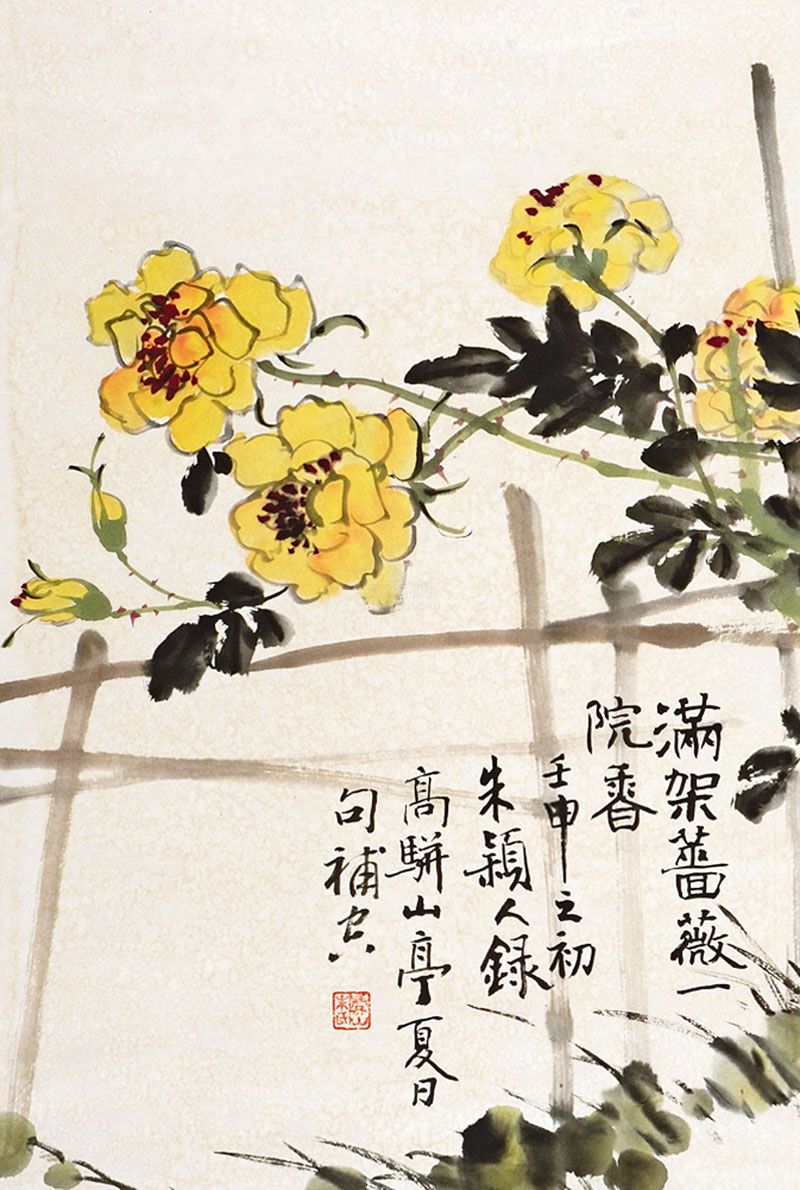 滿架薔薇一
院香
壬申之初
朱穎人錄
高駢山亭夏日
句補空